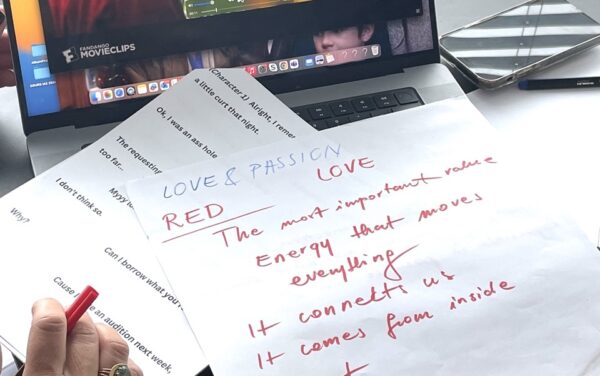 FANDANGO
MOVIECLIPS
(Character 1) Alright, I
a little curt that night.
Ok, I was an ass hole
The requesting
too far...
I don't think so.
Why?
Can I borrow what
Cause
an audition next week,
LOVE & PASSION
RED
LOVE
The most important value
Energy that moves
everything
It connects us
It comes from inside